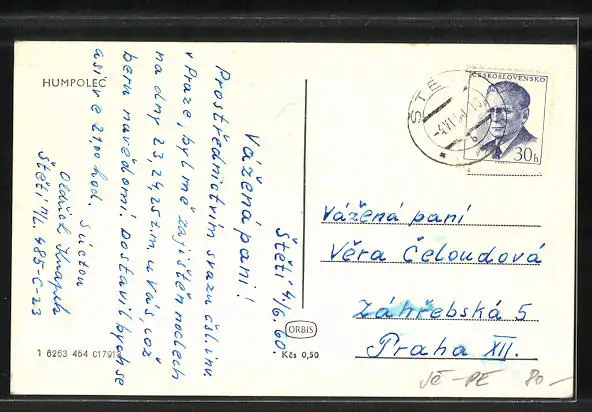 HUMPOLEC
Štětí 4/6.60.
Vážená paní!
Prostřednictvím svazu čsl.
v Praze, byl mě zajištěn nocleh
na dny 23, 24, 25 t.m. u vás což
beru na vědomí. Dostavil bych se
asi ve 21,00 hod.
S úctou
Štětí n/L. 485-C-23
1 6263 454 0179
ORBIS
Kčs 0,50
ČESKOSLOVENSKO
30h
ŠTĚ
-4.VI.
b
Vážená paní
Věra Čeloudová
Záhřebská 5
Praha XII.
VČ-PE 80-